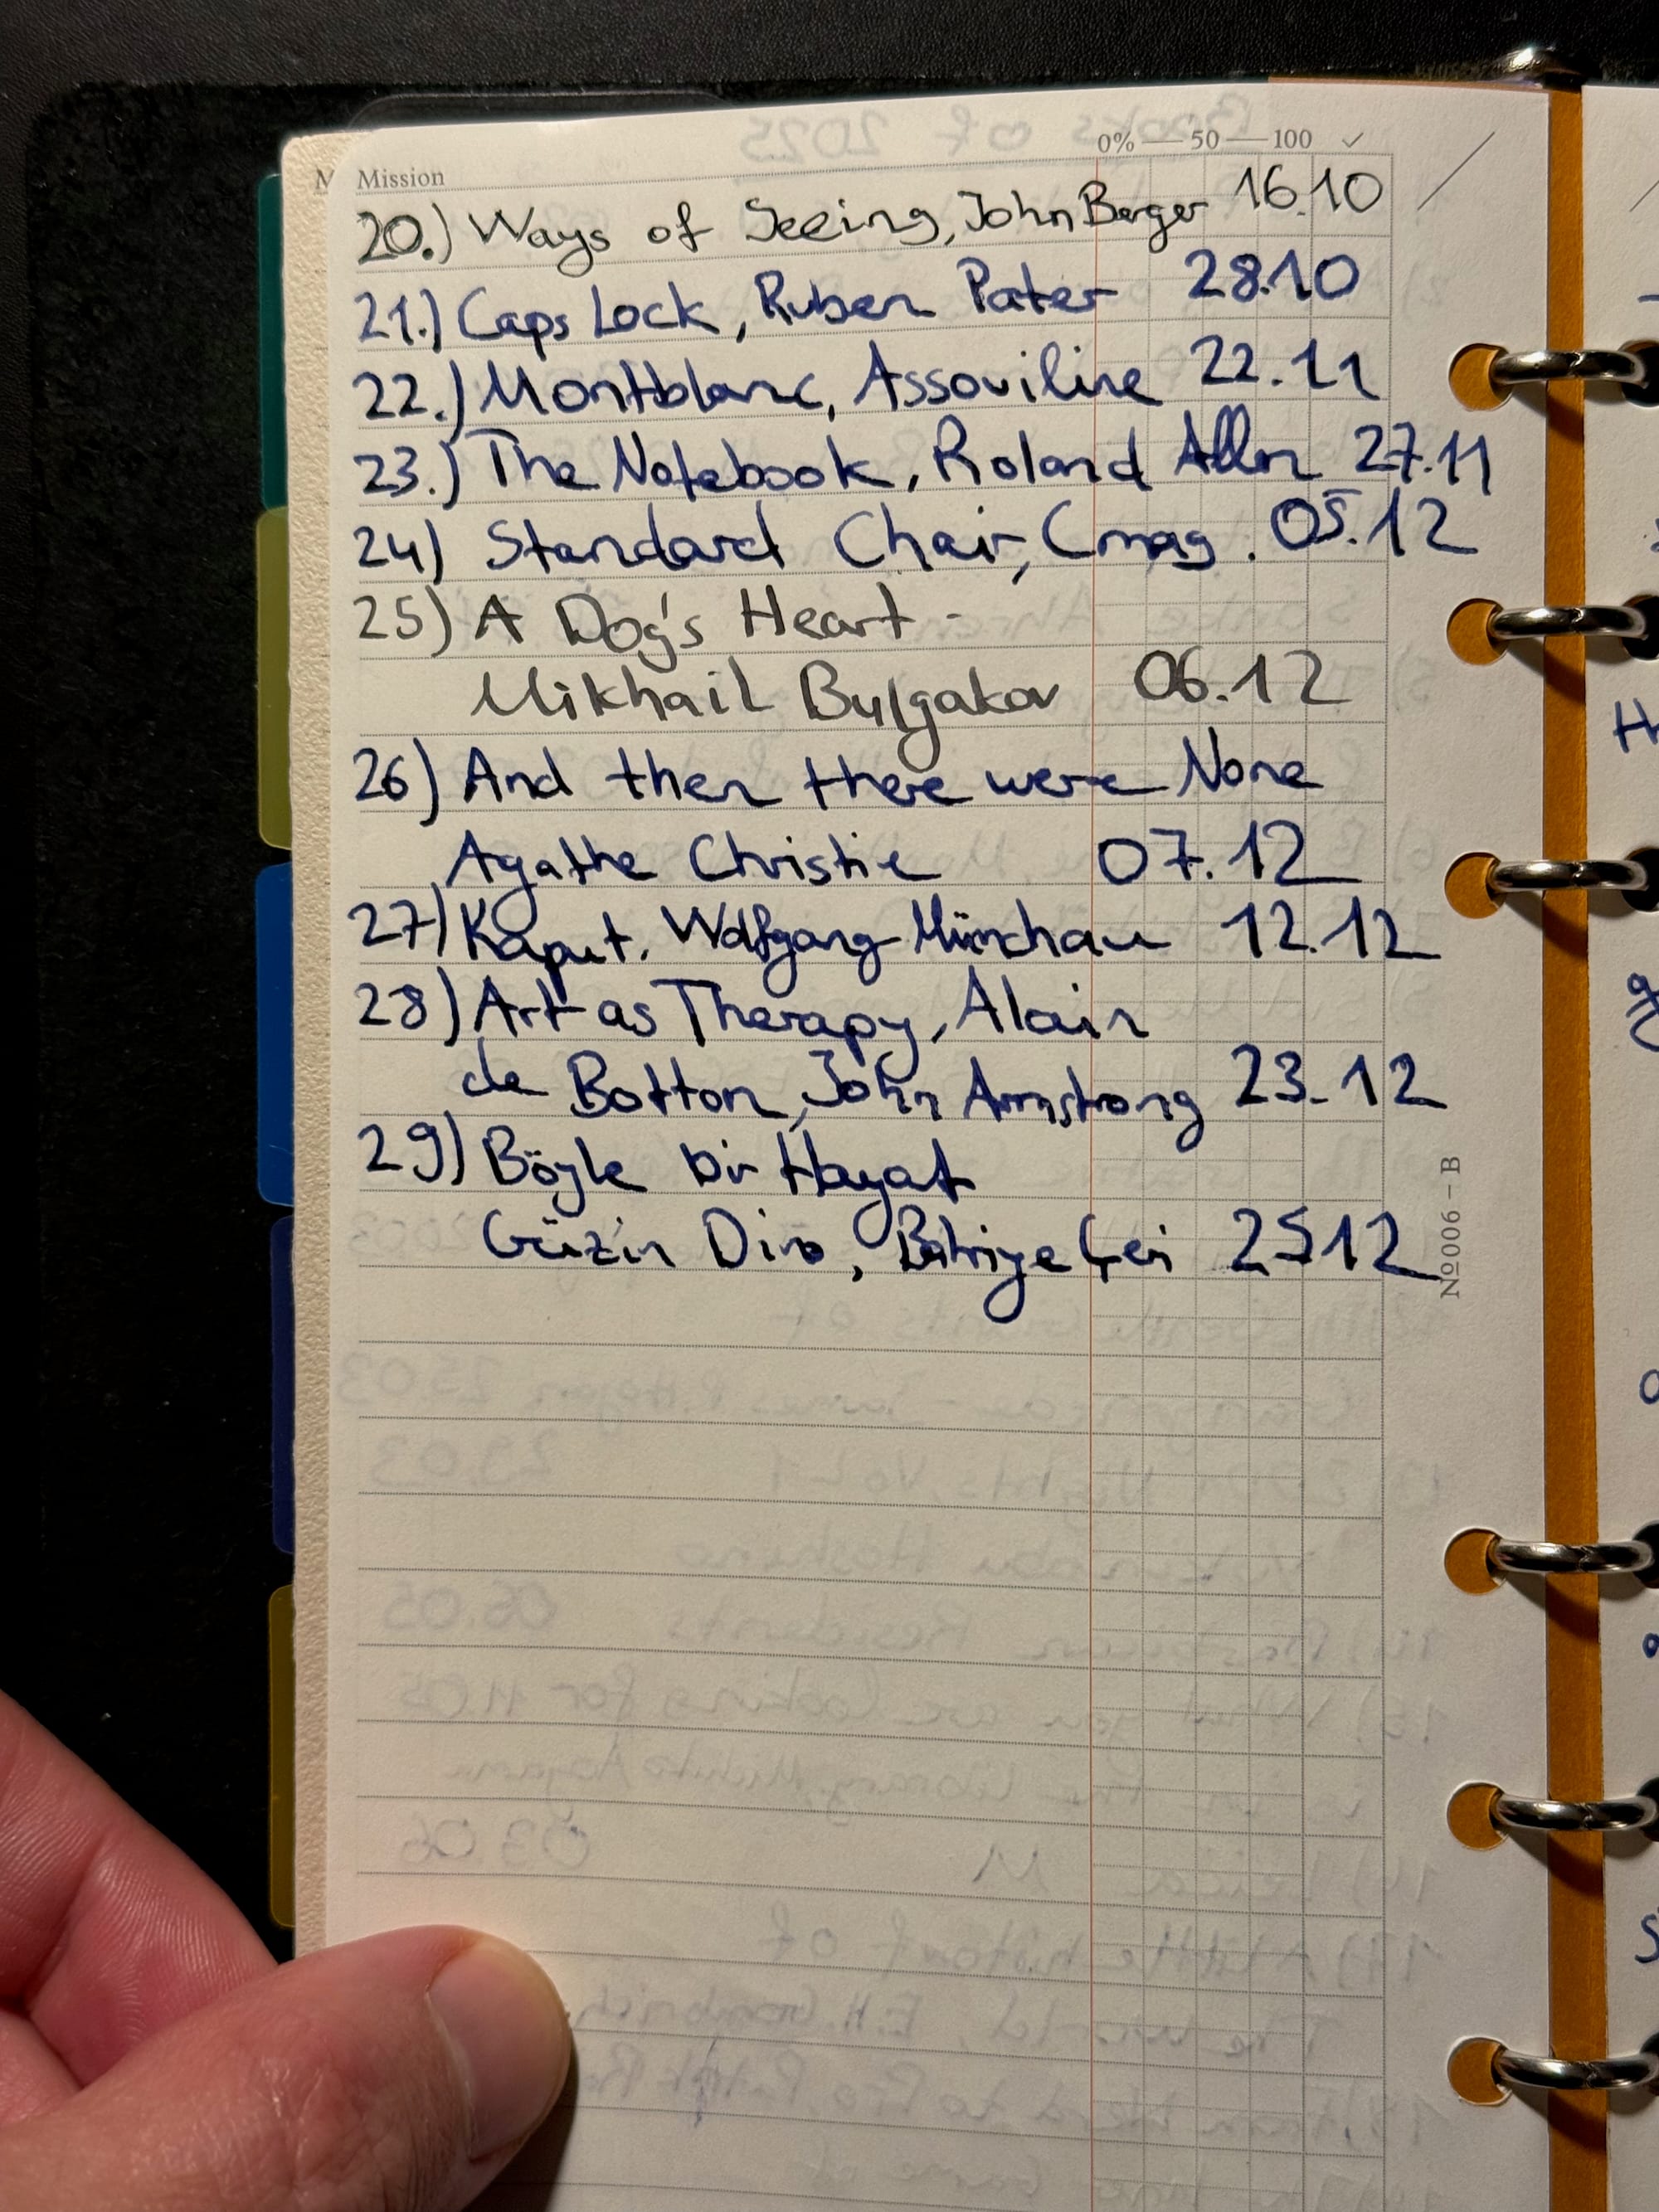 0% 50 100
Mission
20.) Ways of Seeing, John Berger 16.10
21.) Caps Lock, Ruben Pater 28.10
22.) Montblanc, Assouline 22.11
23.) The Notebook, Roland Allen 27.11
24) Standard Chair, Cmag. 05.12
25) A Dog's Heart -
Mikhail Bulgakov 06.12
26) And then there were None
Agatha Christie 07.12
27) Kaput. Wolfgang Münchau 12.12
28) Art as Therapy, Alain
de Botton, John Armstrong 23.12
29) Böyle bir Hayat
Güzin Dino, 2512
№006 – B